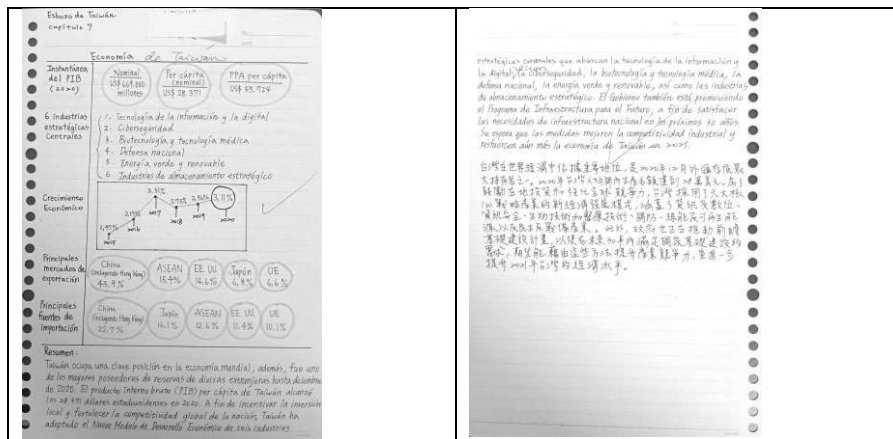 Esbozo de Taiwán
capítulo 7
Economía de Taiwán
Instantánea del PIB (2020)
Nominal US$ 669.000 millones
Per cápita (nominal) US$ 28.371
PPA per cápita US$ 55.724
6 Industrias estratégicas Centrales
1. Tecnología de la información y la digital
2. Ciberseguridad
3. Biotecnología y tecnología médica
4. Defensa nacional
5. Energía verde y renovable
6. Industrias de almacenamiento estratégico
Crecimiento Económico
1,47% 2015
2,17% 2016
3,31% 2017
2018
2019
3,11% 2020
Principales mercados de exportación
China (incluyendo Hong Kong) 43.9%
ASEAN 15.4%
EE. UU. 14.6%
Japón 6.8%
UE 6.6%
Principales fuentes de importación
China (incluyendo Hong Kong) 22.7%
Japón 16.1%
ASEAN 12.6%
EE. UU. 11.4%
UE 10.1%
Resumen:
Taiwán ocupa una clave posición en la economía mundial, además, fue uno
de los mayores poseedores de reservas de divisas extranjeras hasta diciembre
de 2020. El producto interno bruto (PIB) per cápita de Taiwán alcanzó
los 28.371 dólares estadounidenses en 2020. A fin de incentivar la inversión
local y fortalecer la competitividad global de la nación, Taiwán ha
adoptado el Nuevo Modelo de Desarrollo Económico de seis industrias
estratégicas centrales que abarcan la tecnología de la información y
la digital, la ciberseguridad, la biotecnología y tecnología médica, la
defensa nacional, la energía verde y renovable, así como las industrias
de almacenamiento estratégico. El Gobierno también está promoviendo
el Programa de Infraestructura para el Futuro, a fin de satisfacer
las necesidades de infraestructura nacional en los próximos 30 años.
Se espera que las medidas mejoren la competitividad industrial y
refuercen aún más la economía de Taiwán en 2021.
台灣在世界經濟中佔據重要地位,是2020年12月外匯存底最
大持有者之一。2020年台灣人均國內生產毛額達到28萬美元。為了
鼓勵在地投資和強化全球競爭力,台灣採用了六大核
心戰略產業的新經濟發展模式,涵蓋了資訊及數位、
資訊安全、生物技術和醫療技術、國防、綠能及可再生能
源以及民生及戰備產業。此外,政府也正在推動前瞻
基礎建設計畫,以便在未來30年內滿足國家基礎建設的
需求,期望能藉由這些方法提升產業競爭力,並進一步
提升2021年台灣的經濟水平。